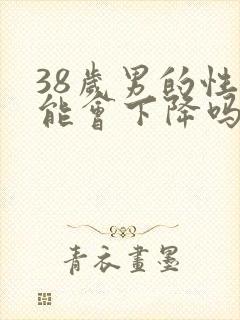 38歲男的性
能會下降吗
青衣畫墨